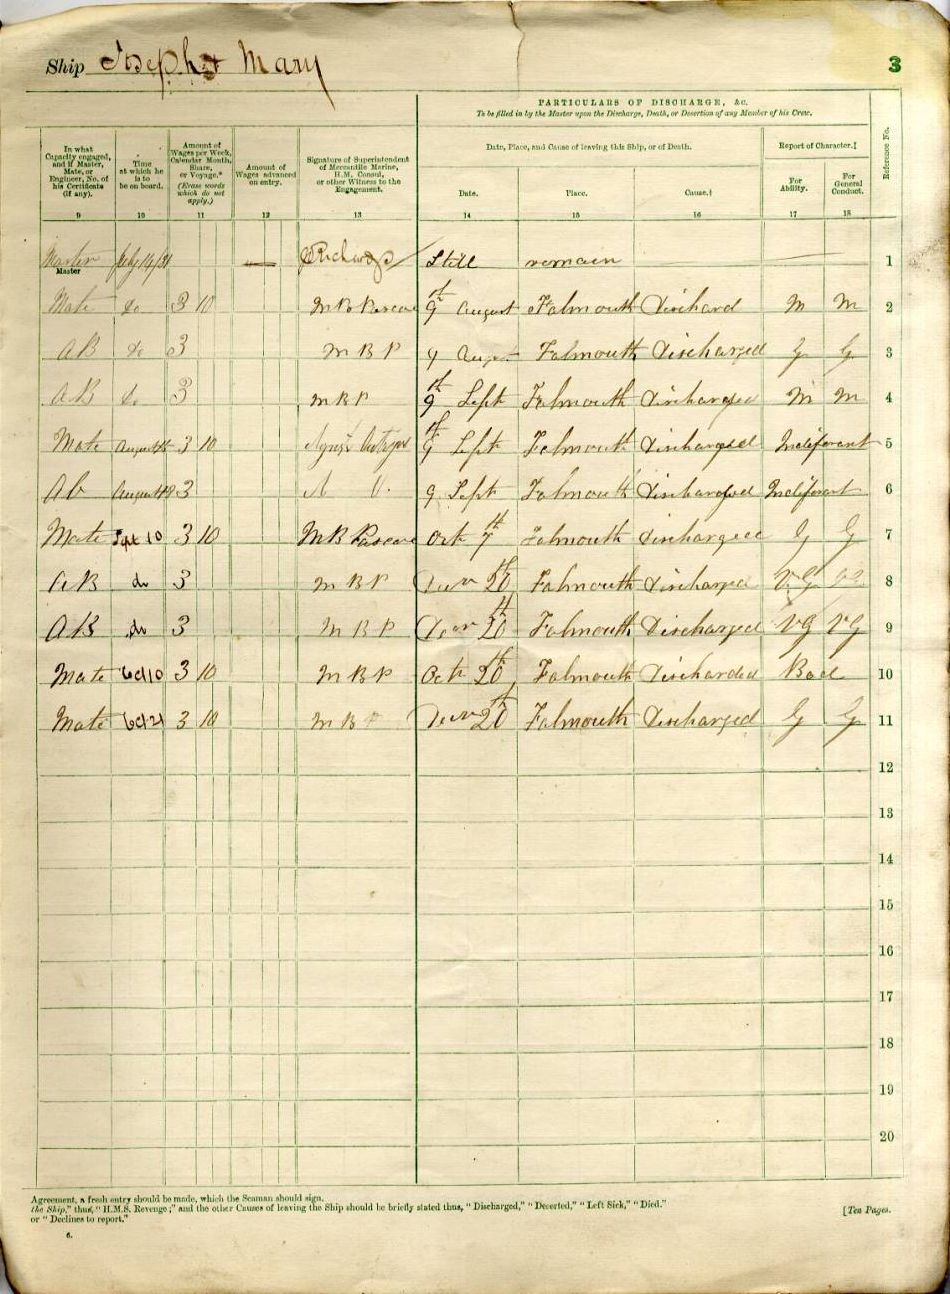 Ship Joseph & Mary
3
PARTICULARS OF DISCHARGE, &c.
To be filled in by the Master upon the Discharge, Death, or Desertion of any Member of his Crew.
In what Capacity engaged, and if Master, Mate, or Engineer, No. of his Certificate (if any).
Time at which he is to be on board.
Amount of Wages per Week, Calendar Month, Share, or Voyage.* (Erase words which do not apply.)
Amount of Wages advanced on entry.
Signature of Superintendent of Mercantile Marine, H.M. Consul, or other Witness to the Engagement.
Date, Place, and Cause of leaving this Ship, or of Death.
Report of Character.‡
Reference No.
Date.
Place.
Cause.†
For Ability.
For General Conduct.
9 10 11 12 13 14 15 16 17 18
Master July 14/81 — Richards Still remain — 1
Master
Mate do 3 10 M B Pascoe 9th August Falmouth Dischard M M 2
AB do 3 M B P 9 August Falmouth Discharged G G 3
AB do 3 M B P 9th Sept Falmouth Discharged M M 4
Mate August 3 10 9th Sept Falmouth Discharged Indiferant 5
Ab August 3 9 Sept Falmouth Discharged Indiferant 6
Mate Sept 10 3 10 M B Pascoe Oct 7th Falmouth Discharged G G 7
AB do 3 M B P 20th Falmouth Discharged VG VG 8
AB do 3 M B P 20th Falmouth Discharged VG VG 9
Mate Oct 10 3 10 M B P Oct 20th Falmouth Discharded Bad 10
Mate Oct 21 3 10 M B P 20th Falmouth Discharged G G 11
12
13
14
15
16
17
18
19
20
Agreement, a fresh entry should be made, which the Seaman should sign.
the Ship," thus, "H.M.S. Revenge;" and the other Causes of leaving the Ship should be briefly stated thus, "Discharged," "Deserted," "Left Sick," "Died."
or "Declines to report."
[Ten Pages.
6.